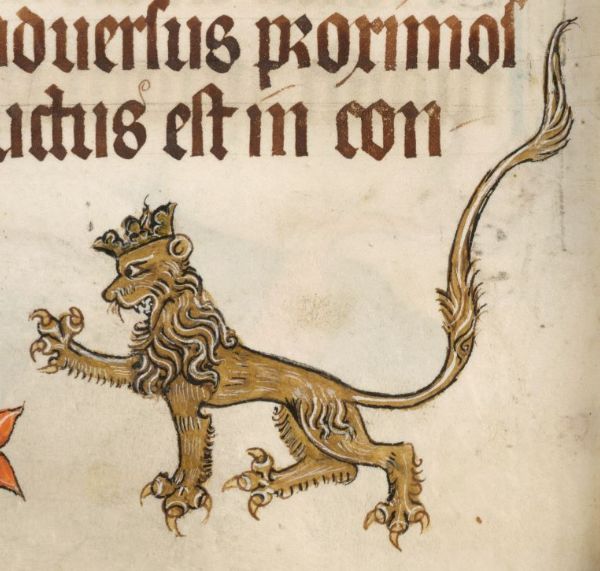 aduerſus proximoſ
uctus eſt in con